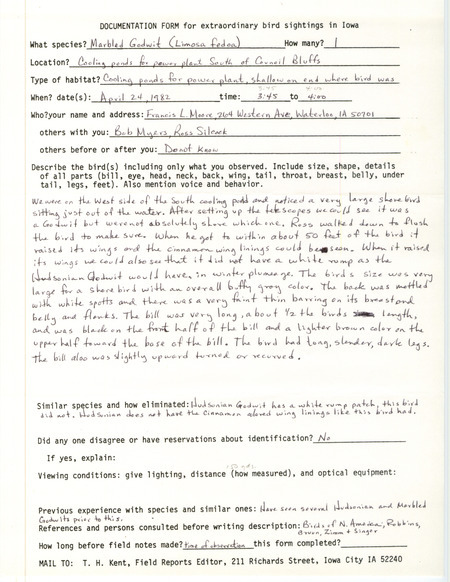 DOCUMENTATION FORM for extraordinary bird sightings in Iowa
What species? Marbled Godwit (Limosa fedoa) How many? 1
Location? Cooling ponds for power plant South of Council Bluffs
Type of habitat? Cooling ponds for power plant, shallow on end where bird was
When? date(s): April 24, 1982 time: 3:45 to 4:00
Who? your name and address: Francis L. Moore, 204 Western Ave, Waterloo, IA 50701
others with you: Bob Myers, Ross Silcock
others before or after you: Do not know
Describe the bird(s) including only what you observed. Include size, shape, details
of all parts (bill, eye, head, neck, back, wing, tail, throat, breast, belly, under
tail, legs, feet). Also mention voice and behavior.
We were on the West side of the South cooling pond and noticed a very large shorebird
sitting just out of the water. After setting up the telescopes we could see it was
a Godwit but were not absolutely shore which one. Ross walked down to flush
the bird to make sure. When he got to within about 50 feet of the bird it
raised its wings and the cinnamon wing linings could be seen. When it raised
its wings we could also see that it did not have a white rump as the
Hudsonian Godwit would have, in winter plumage. The birds size was very
large for a shorebird with an overall buffy gray color. The back was mottled
with white spotts and there was a very faint thin barring on its breast and
belly and flanks. The bill was very long, about 1/2 the birds length,
and was black on the front half of the bill and a lighter brown color on the
upper half toward the base of the bill. The bird had long, slender, dark legs.
The bill also was slightly upward turned or recurved.
Similar species and how eliminated: Hudsonian Godwit has a white rump patch, this bird
did not. Hudsonian does not have the Cinnamon colored wing linings like this bird had.
Did any one disagree or have reservations about identification? No
If yes, explain:
Viewing conditions: give lighting, distance (how measured), and optical equipment:
Previous experience with species and similar ones: Have seen several Hudsonian and Marbled
Godwits prior to this.
References and persons consulted before writing description: Birds of N. America, Robbins,
Bruun, Zimm & Singer
How long before field notes made? time of observation this form completed?
MAIL TO: T. H. Kent, Field Reports Editor, 211 Richards Street, Iowa City IA 52240